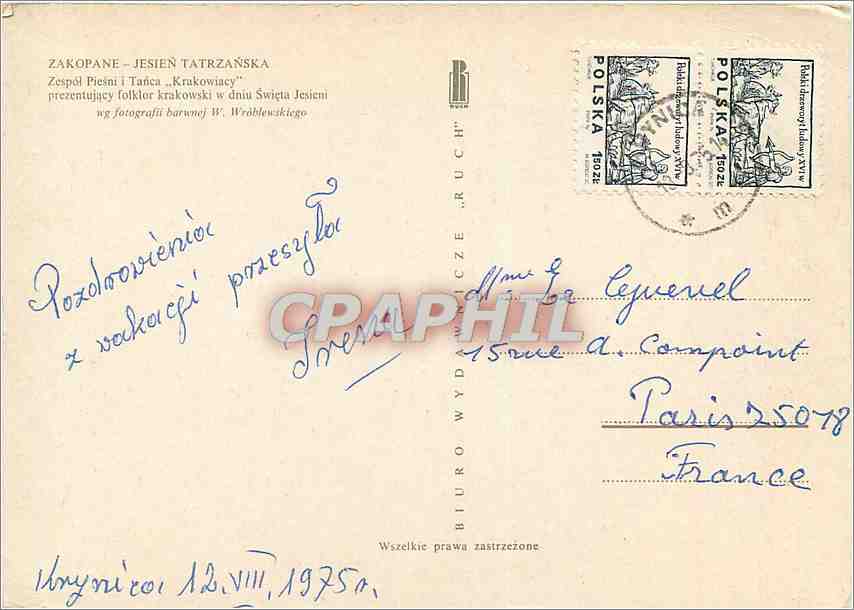 ZAKOPANE – JESIEŃ TATRZAŃSKA
Zespół Pieśni i Tańca „Krakowiacy”
prezentujący folklor krakowski w dniu Święta Jesieni
wg fotografii barwnej W. Wróblewskiego
RUCH
Pozdrowienia
z wakacji przesyła
Irena
Krynica 12.VIII.1975r.
BIURO WYDAWNICZE „RUCH”
Wszelkie prawa zastrzeżone
POLSKA
1.50 ZŁ
Polski drzeworyt ludowy XVI w
POLSKA
1.50 ZŁ
Polski drzeworyt ludowy XVI w
Mme
15 rue A. Compoint
Paris 75018
France
CPAPHIL